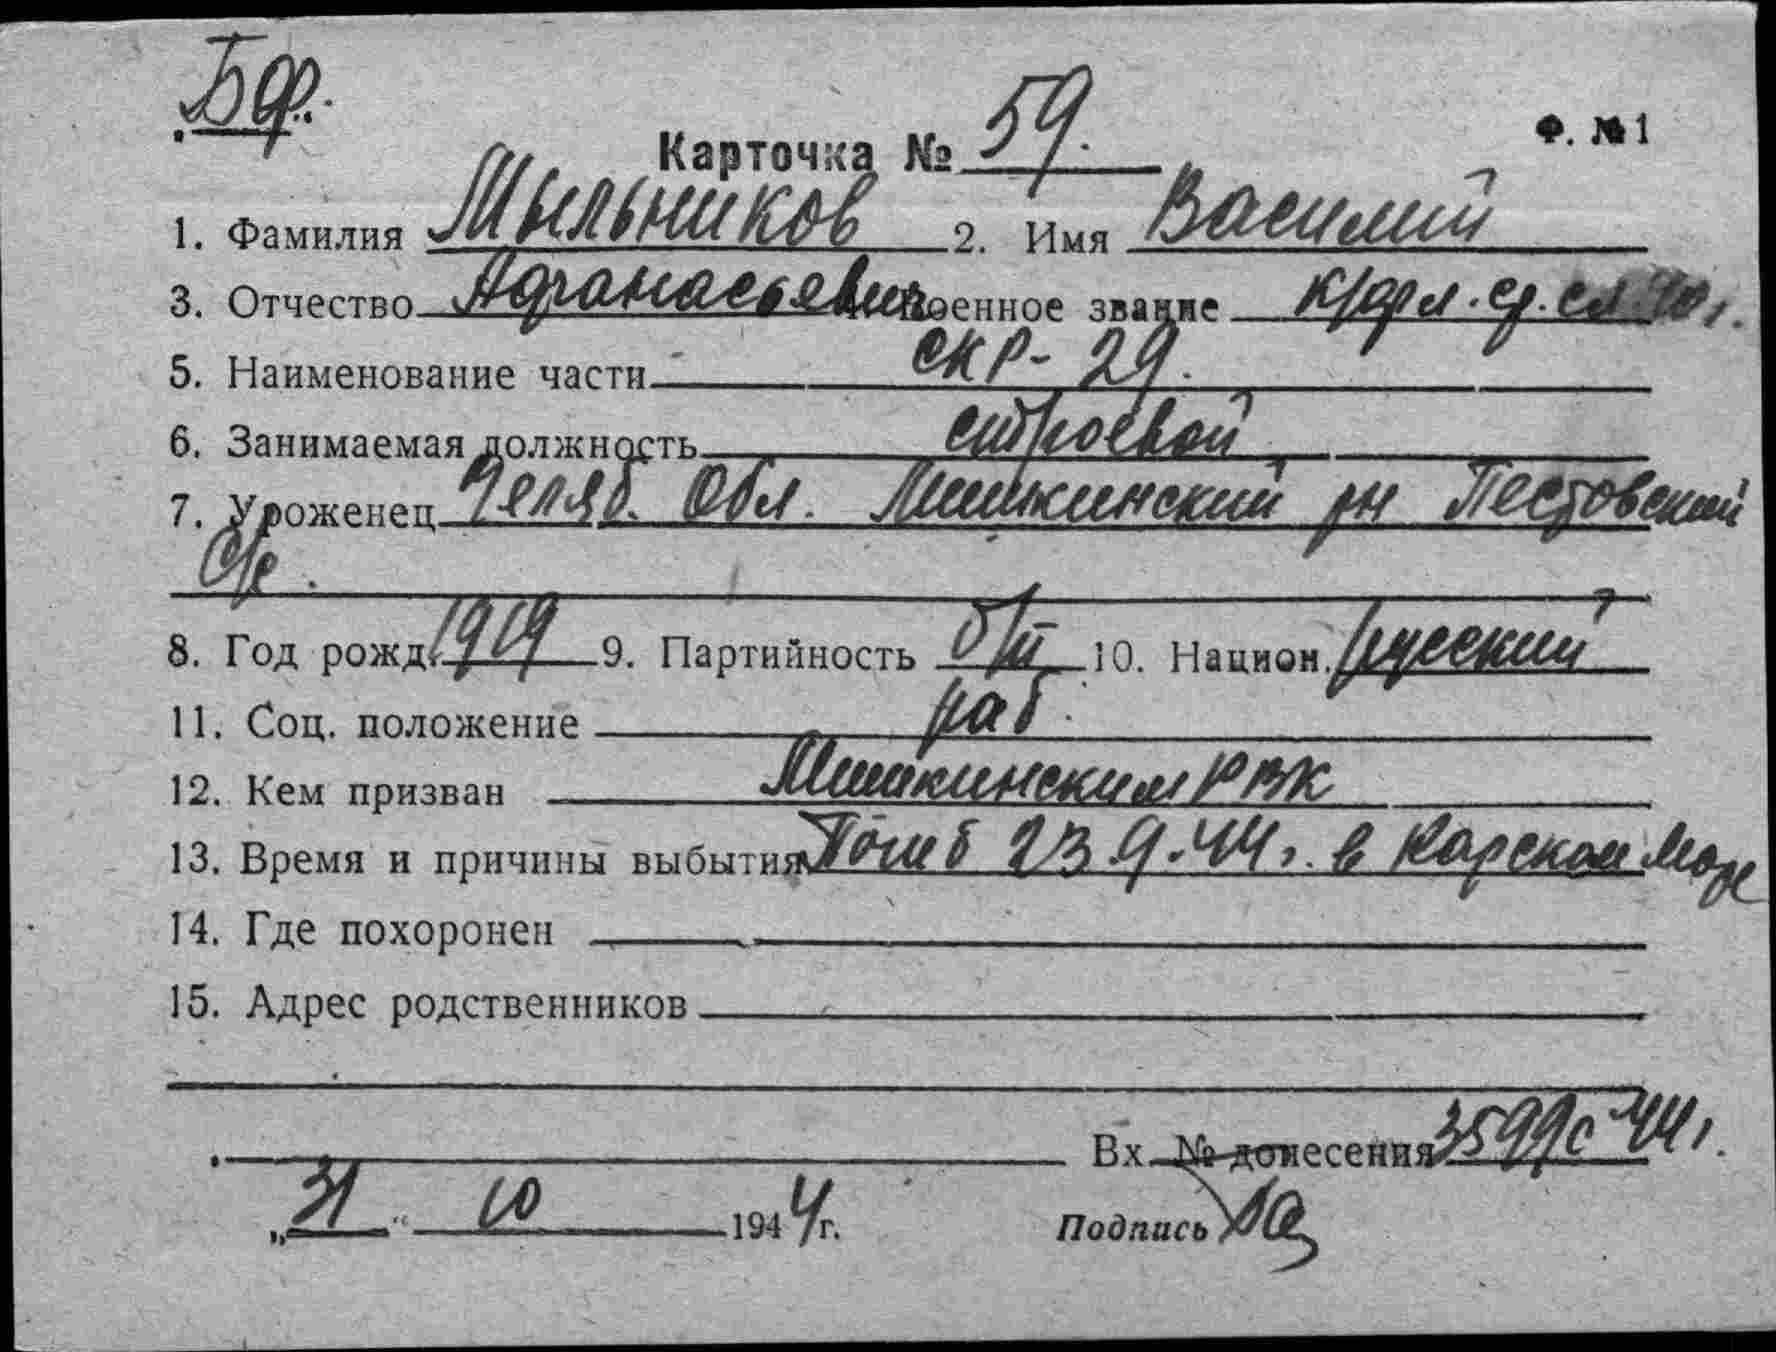 БФ.
Карточка № 59.
Ф. № 1
1. Фамилия Мыльников 2. Имя Василий
3. Отчество Афанасьевич Военное звание к/фл. ср. сл. 40 г.
5. Наименование части СКР-29.
6. Занимаемая должность строевой
7. Уроженец Челяб. Обл. Мишкинский рн Пестовский
С/с.
8. Год рожд. 1919 9. Партийность б/п 10. Национ. русский
11. Соц. положение раб.
12. Кем призван Мишкинским РВК
13. Время и причины выбытия Погиб 23.9.44 г. в Карском море
14. Где похоронен
15. Адрес родственников
Вх. № донесения 3599с 44 г.
„31“ 10 1944 г.
Подпись